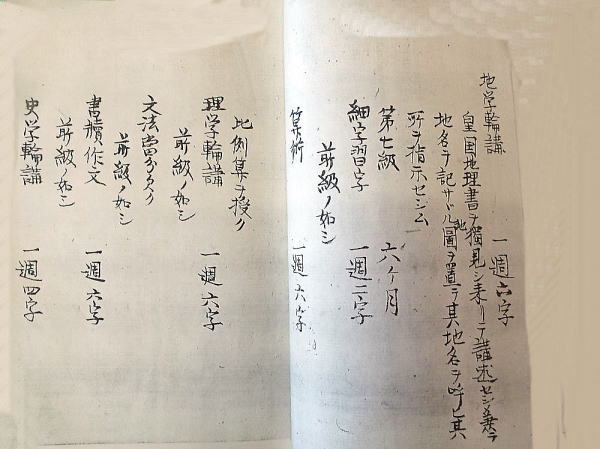 地学輪講　一週六字
皇国地理書ヲ獨見シ来リテ講述セシメ兼テ
地名ヲ記サヾル地圖ヲ置テ其地名ヲ呼ヒ其
所ヲ指示セシム
第七級　六ケ月
細字習字　一週二字
前級ノ如シ
算術　一週六字
比例算ヲ授ク
理学輪講　一週六字
前級ノ如シ
文法當分欠ク
前級ノ如シ
書牘作文　一週六字
前級ノ如シ
史学輪講　一週四字